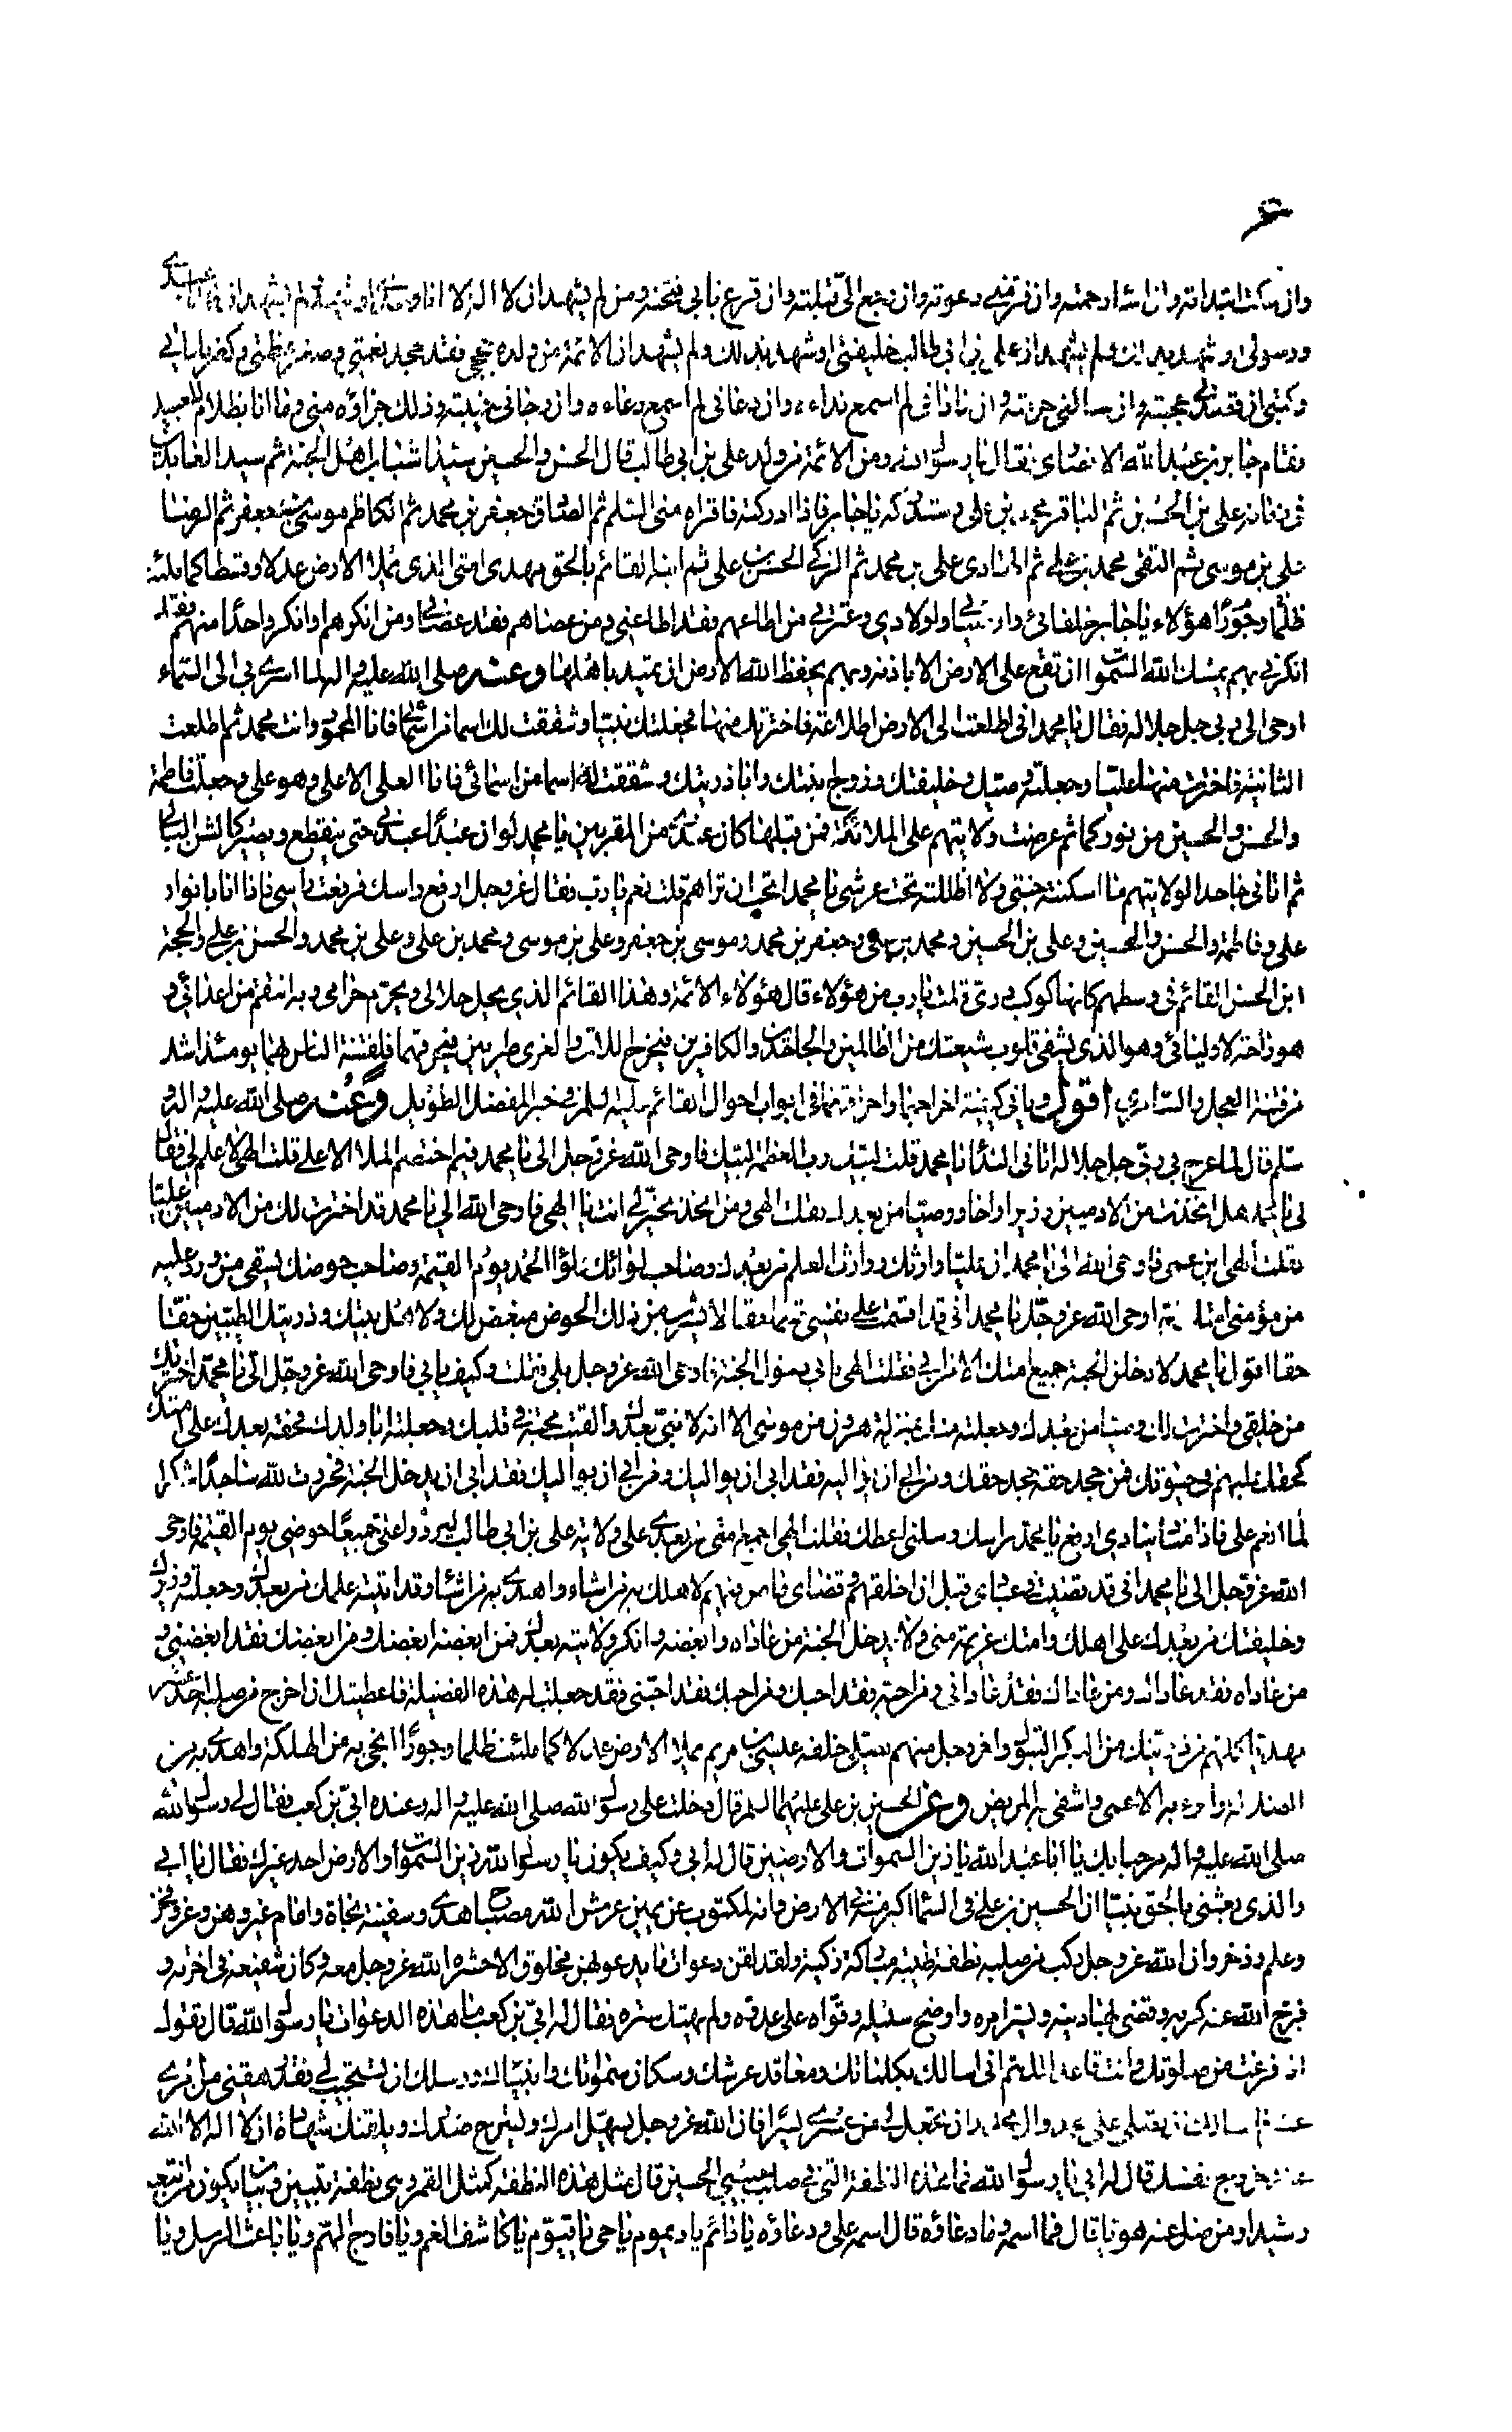 وان سكت ابتداته وان اشاء رحمته وان فر مني دعوته وان رجع الى قبلته وان قرع بابي فتحته ومن لم يشهد ان لا اله الا انا وحدي او شهد ولم يشهد ان محمدا عبدي
ورسولي او شهد بذلك ولم يشهد ان علي بن ابي طالب خليفتي او شهد بذلك ولم يشهد ان الائمة من ولده حججي فقد جحد نعمتي وصغر عظمتي وكفر باياتي
وكتبي ان قصدني حجبته وان سالني حرمته وان ناداني لم اسمع نداءه وان دعاني لم اسمع دعاءه وان رجاني خيبته وذلك جزاؤه مني وما انا بظلام للعبيد
فقام جابر بن عبد الله الانصاري فقال يا رسول الله ومن الائمة من ولد علي بن ابي طالب قال الحسن والحسين سيدا شباب اهل الجنة ثم سيد العابدين
في زمانه علي بن الحسين ثم الباقر محمد بن علي وستدركه يا جابر فاذا ادركته فاقراه مني السلم ثم الصادق جعفر بن محمد ثم الكاظم موسى بن جعفر ثم الرضا
علي بن موسى ثم التقي محمد بن علي ثم الهادي علي بن محمد ثم الزكي الحسن بن علي ثم ابنه القائم بالحق مهدي امتي الذي يملا الارض عدلا وقسطا كما ملئت
ظلما وجورا هؤلاء يا جابر خلفائي واوصيائي واولادي وعترتي من اطاعهم فقد اطاعني ومن عصاهم فقد عصاني ومن انكرهم او انكر واحدا منهم فقد
انكرني بهم يمسك الله السموات ان تقع على الارض الا باذنه وبهم يحفظ الله الارض ان تميد باهلها وعنه صلى الله عليه واله لما اسري بي الى السماء
اوحى الي ربي جل جلاله فقال يا محمد اني اطلعت الى الارض اطلاعة فاخترتك منها فجعلتك نبيا وشققت لك اسما من اسمائي فانا المحمود وانت محمد ثم طلعت
الثانية فاخترت منها عليا وجعلته وصيك وخليفتك وزوج ابنتك وابا ذريتك وشققت له اسما من اسمائي فانا العلي الاعلى وهو علي وجعلت فاطمة
والحسن والحسين من نوركما ثم عرضت ولايتهم على الملائكة فمن قبلها كان عندي من المقربين يا محمد لو ان عبدا عبدني حتى ينقطع ويصير كالشن البالي
ثم اتاني جاحدا لولايتهم ما اسكنته جنتي ولا اظللته تحت عرشي يا محمد اتحب ان تراهم قلت نعم يا رب فقال عز وجل ارفع راسك فرفعت راسي فاذا انا بانوار
علي وفاطمة والحسن والحسين وعلي بن الحسين ومحمد بن علي وجعفر بن محمد وموسى بن جعفر وعلي بن موسى ومحمد بن علي وعلي بن محمد والحسن بن علي والحجة
ابن الحسن القائم في وسطهم كانها كوكب دري قلت يا رب من هؤلاء قال هؤلاء الائمة وهذا القائم الذي يحل حلالي ويحرم حرامي وبه انتقم من اعدائي و
هو راحة لاوليائي وهو الذي يشفي قلوب شيعتك من الظالمين والجاحدين والكافرين فيخرج اللات والعزى طريين فيحرقهما فلفتنة الناس بهما يومئذ اشد
من فتنة العجل والسامري اقول وياتي كيفية اخراجهما واحراقهما في ابواب احوال القائم عليه السلم في خبر المفضل الطويل وعنه صلى الله عليه واله و
سلم قال لما عرج بي ربي جل جلاله اتاني الندا يا محمد قلت لبيك رب العظمة لبيك فاوحى الله عز وجل الي يا محمد فيم اختصم الملا الاعلى قلت الهي لا علم لي فقال
لي يا محمد هل اتخذت من الادميين وزيرا واخا ووصيا من بعدك فقلت الهي ومن اتخذ تخير لي انت يا الهي فاوحى الله الي يا محمد قد اخترت لك من الادميين عليا
فقلت الهي ابن عمي فاوحى الله الي يا محمد ان عليا وارثك ووارث العلم من بعدك وصاحب لوائك لواء الحمد يوم القيمة وصاحب حوضك يسقي من ورد عليه
من مؤمني امتك ثم اوحى الله عز وجل يا محمد اني قد اقسمت على نفسي قسما حقا لا يشرب من ذلك الحوض مبغض لك ولاهل بيتك وذريتك الطيبين حقا
حقا اقول يا محمد لادخلن الجنة جميع امتك الا من ابى فقلت الهي يابى دخول الجنة فاوحى الله عز وجل بلى فقلت وكيف يابى فاوحى الله عز وجل الي يا محمد اخترتك
من خلقي واخترت لك وصيا من بعدك وجعلته منك بمنزلة هرون من موسى الا انه لا نبي بعدك والقيت محبته في قلبك وجعلته ابا ولدك فحقه بعدك على امتك
كحقك عليهم في حيوتك فمن جحد حقه جحد حقك ومن ابى ان يواليه فقد ابى ان يواليك ومن ابى ان يواليك فقد ابى ان يدخل الجنة فخررت لله ساجدا شكرا
لما انعم علي فاذا مناد ينادي ارفع يا محمد راسك وسلني اعطك فقلت الهي اجمع امتي من بعدي على ولاية علي بن ابي طالب ليردوا علي جميعا حوضي يوم القيمة فاوحى
الله عز وجل الي يا محمد اني قد قضيت في عبادي قبل ان اخلقهم وقضاي ماض فيهم لاهلك به من اشاء واهدي به من اشاء وقد اتيته علمك من بعدك وجعلته وزيرك
وخليفتك من بعدك على اهلك وامتك عزيمة مني ولا يدخل الجنة من عاداه وابغضه وانكر ولايته بعدك فمن ابغضه ابغضك ومن ابغضك فقد ابغضني و
من عاداه فقد عاداك ومن عاداك فقد عاداني ومن احبه فقد احبك ومن احبك فقد احبني وقد جعلت له هذه الفضيلة فاعطيتك ان اخرج من صلبه احد عشر
مهديا كلهم من ذريتك من البكر البتول واخر رجل منهم يصلي خلفه عيسى بن مريم يملا الارض عدلا كما ملئت ظلما وجورا انجي به من الهلكة واهدي به من
الضلالة وابرئ به الاعمى واشفي به المريض وعن الحسين بن علي عليهما السلم قال دخلت على رسول الله صلى الله عليه واله وعنده ابي بن كعب فقال لي رسول الله
صلى الله عليه واله مرحبا بك يا ابا عبد الله يا زين السموات والارضين قال له ابي وكيف يكون يا رسول الله زين السموات والارض احد غيرك فقال يا ابي
والذي بعثني بالحق نبيا ان الحسين بن علي في السماء اكبر منه في الارض وانه لمكتوب عن يمين عرش الله مصباح هدى وسفينة نجاة وامام غير وهن وعز وفخر
وعلم وذخر وان الله عز وجل ركب في صلبه نطفة طيبة مباركة زكية ولقد لقن دعوات ما يدعو بهن مخلوق الا حشره الله عز وجل معه وكان شفيعه في اخرته و
فرج الله عنه كربه وقضى بها دينه ويسر امره واوضح سبيله وقواه على عدوه ولم يهتك ستره فقال له ابي بن كعب ما هذه الدعوات يا رسول الله قال تقول
اذا فرغت من صلوتك وانت قاعد اللهم اني اسالك بكلماتك ومعاقد عرشك وسكان سمواتك وانبيائك ورسلك ان تستجيب لي فقد رهقني من امري
عسرا فاسالك ان تصلي على محمد وال محمد وان تجعل لي من عسري يسرا فان الله عز وجل يسهل امرك ويشرح صدرك ويلقنك شهادة ان لا اله الا الله
عند خروج نفسك قال له ابي يا رسول الله فما هذه النطفة التي في صلب حبيبي الحسين قال مثل هذه النطفة كمثل القمر وهي نطفة تبيين وبيان يكون من اتبعه
رشيدا ومن ضل عنه هويا قال فما اسمه وما دعاؤه قال اسمه علي ودعاؤه يا دائم يا ديموم يا حي يا قيوم يا كاشف الغم ويا فارج الهم ويا باعث الرسل ويا